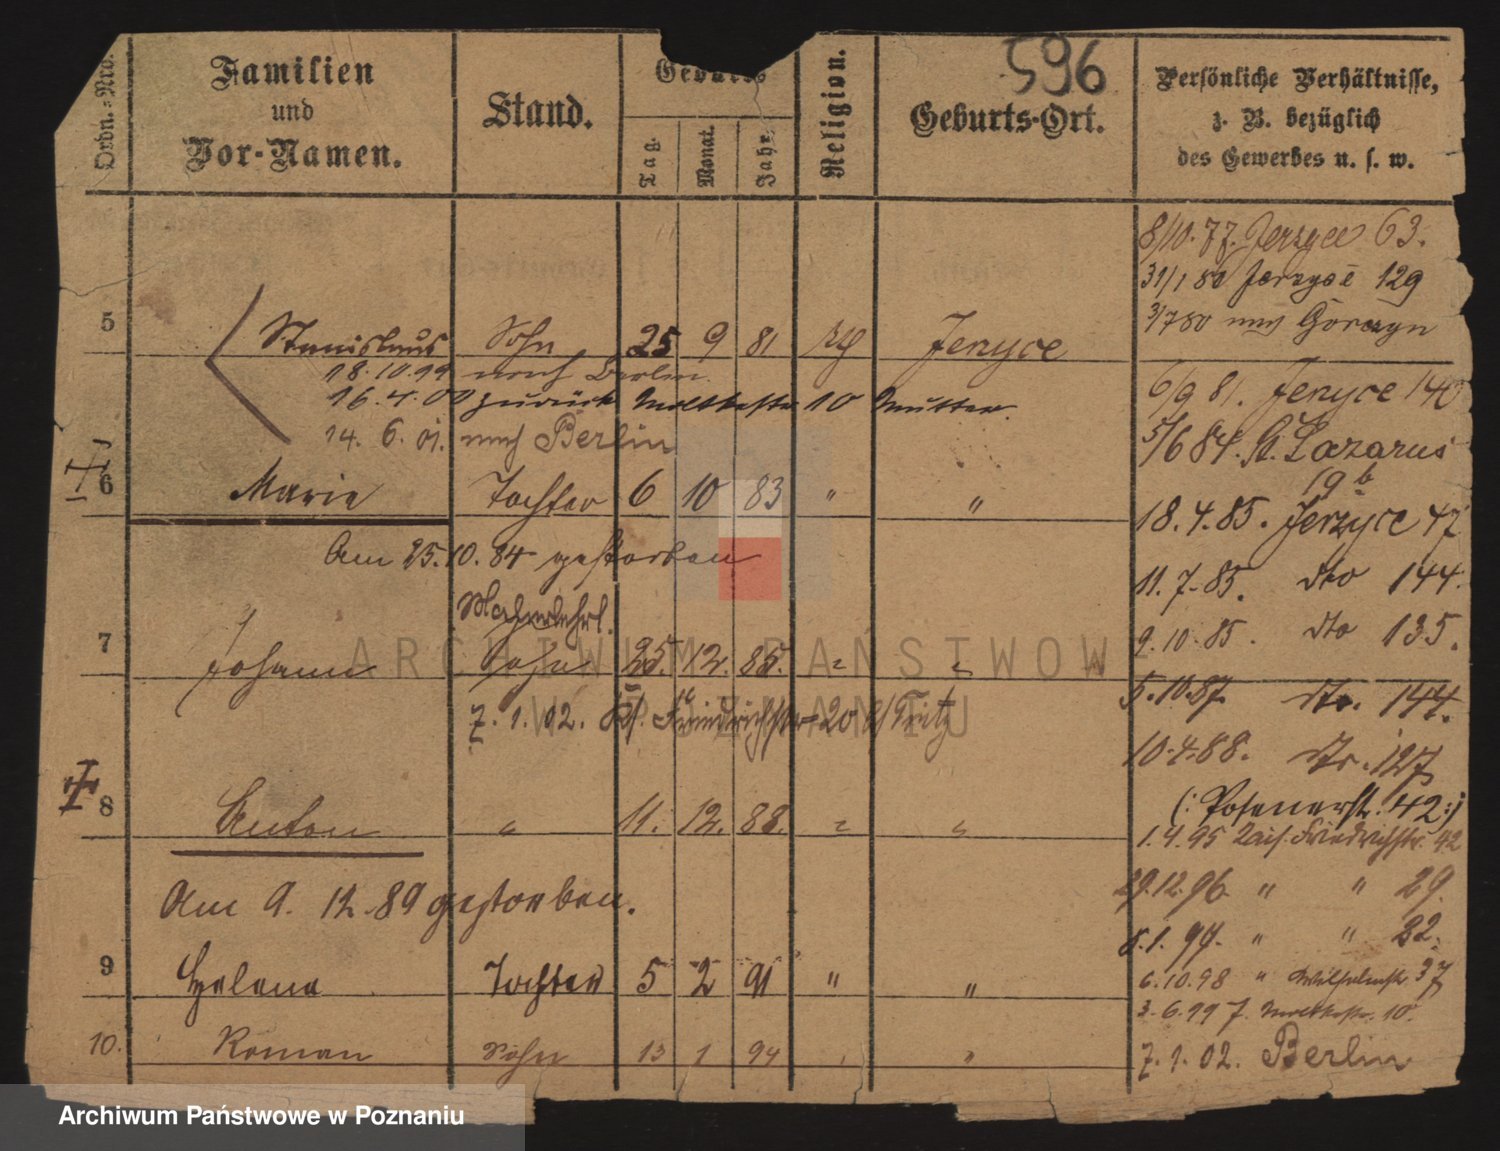 596
Ordn.-Nro.
Familien
und
Vor-Namen.
Stand.
Geburts
Tag.
Monat.
Jahr.
Religion.
Geburts-Ort.
Persönliche Verhältnisse,
z. B. bezüglich
des Gewerbes u. s. w.
8/10. 77. Jerzyce 63.
31/1 80 Jerzyce 129
3/7 80 nach Gorczyn
5 Stanislaus Sohn 25 9 81 Jerzyce
18.10.99 nach Berlin.
16.4.00 zurück Moltkestr 10 Mutter.
14. 6. 01. nach Berlin
6/9 81. Jerzyce 140
5/6 84. St. Lazarus
19 b
6 Marie Tochter 6 10 83 " "
Am 25.10.84 gestorben
18.4.85. Jerzyce 47
11.7.85. dto 144.
9.10.85. dto 135.
7 Johann Sohn 25. 12. 85. " "
7.1.02. Friedrichstr 20
5.10.87. dto. 144.
10.4.88. dto. 127
(: Posenerstr. 42 :)
8 Anton " 11. 12. 88. " "
Am 9. 12. 89 gestorben.
1.4.95 Kais. Friedrichstr. 42
29.12.96. " " 29.
8.1.97. " " 22.
9 Helene Tochter 5 2 91 " "
6.10.98 " Wilhelmstr 37
3.6.99 Moltkestr. 10.
10. Roman Sohn 13 1 94 "
7.1.02. Berlin
ARCHIWUM PAŃSTWOWE
W POZNANIU
Archiwum Państwowe w Poznaniu